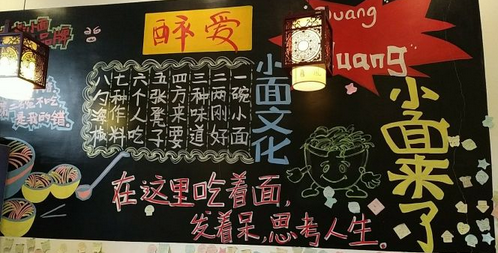 醉爱
Duang
uang
小面来了
小面文化
一碗小面
二两刚好
三种味道
四方来耍
五张凳子
六个人吃
七种作料
八勺海椒
不吃
是我的错。
在这里吃着面,
发着呆,思考人生。